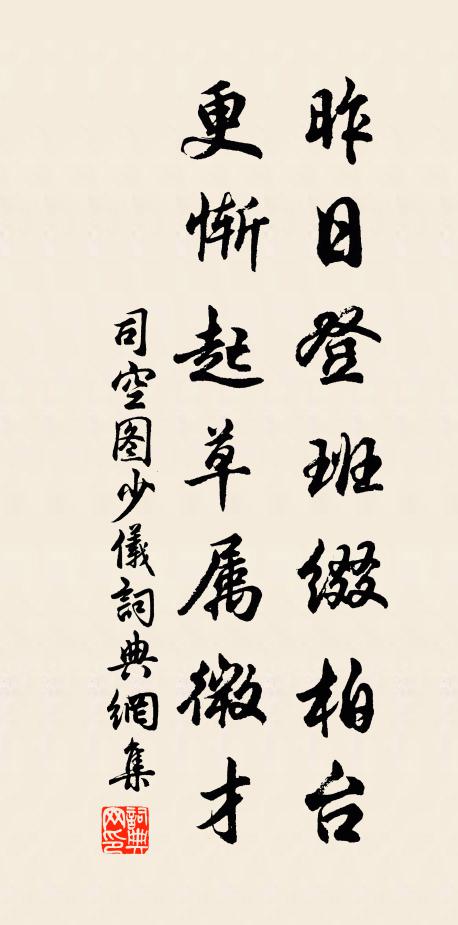 昨日登班缀柏台
更惭起草属微才
司空图少儀詞典網集
詞典网印